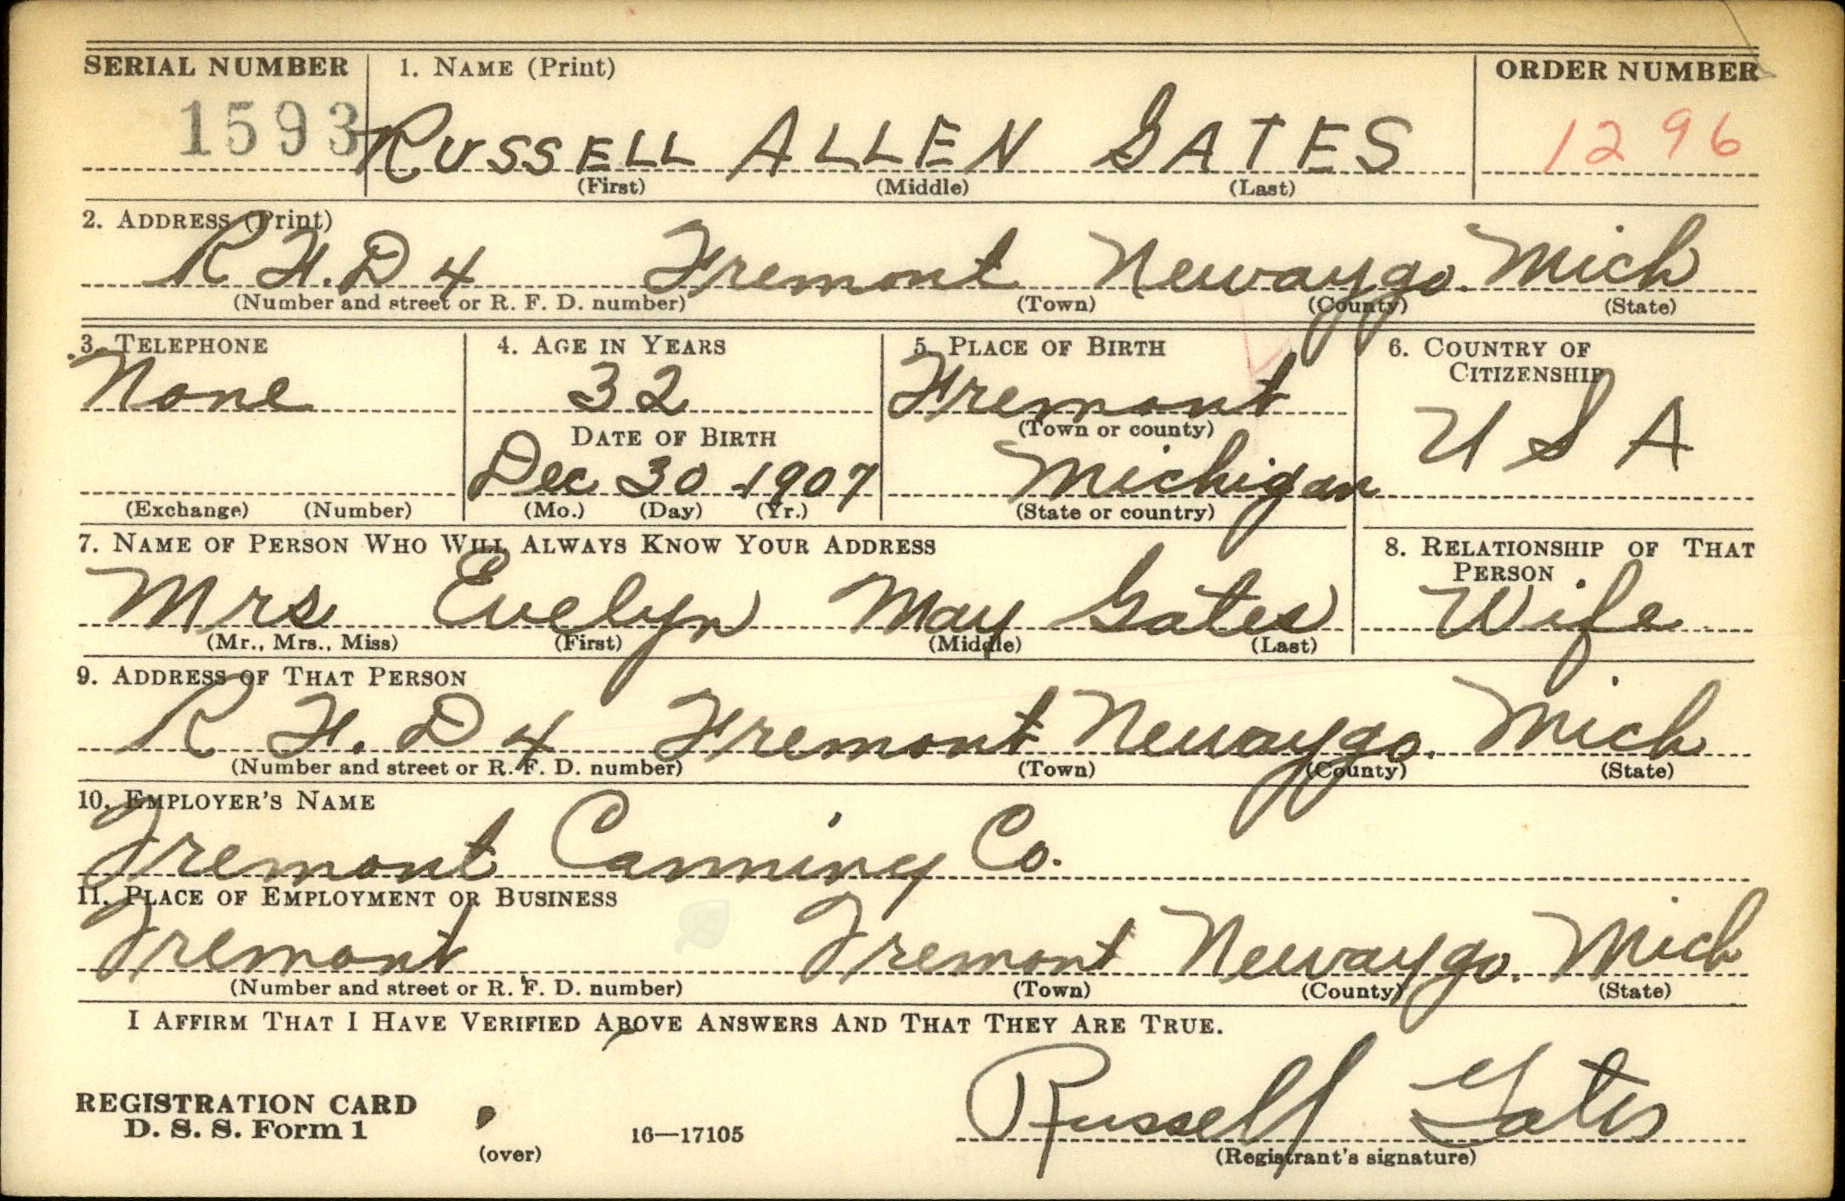 SERIAL NUMBER 1. NAME (Print) ORDER NUMBER
1593 RUSSELL ALLEN GATES 1296
(First) (Middle) (Last)
2. ADDRESS (Print)
R.F.D 4 Fremont Newaygo. Mich
(Number and street or R. F. D. number) (Town) (County) (State)
3. TELEPHONE 4. AGE IN YEARS 5. PLACE OF BIRTH 6. COUNTRY OF
CITIZENSHIP
None 32 Fremont
(Town or county)
DATE OF BIRTH U S A
Dec 30 1907 Michigan
(Exchange) (Number) (Mo.) (Day) (Yr.) (State or country)
7. NAME OF PERSON WHO WILL ALWAYS KNOW YOUR ADDRESS 8. RELATIONSHIP OF THAT
PERSON
Mrs Evelyn May Gates Wife
(Mr., Mrs., Miss) (First) (Middle) (Last)
9. ADDRESS OF THAT PERSON
R F. D 4 Fremont Newaygo. Mich
(Number and street or R. F. D. number) (Town) (County) (State)
10. EMPLOYER'S NAME
Fremont Canning Co.
11. PLACE OF EMPLOYMENT OR BUSINESS
Fremont Fremont Newaygo. Mich
(Number and street or R. F. D. number) (Town) (County) (State)
I AFFIRM THAT I HAVE VERIFIED ABOVE ANSWERS AND THAT THEY ARE TRUE.
Russell Gates
REGISTRATION CARD
D. S. S. Form 1 16—17105
(over) (Registrant's signature)